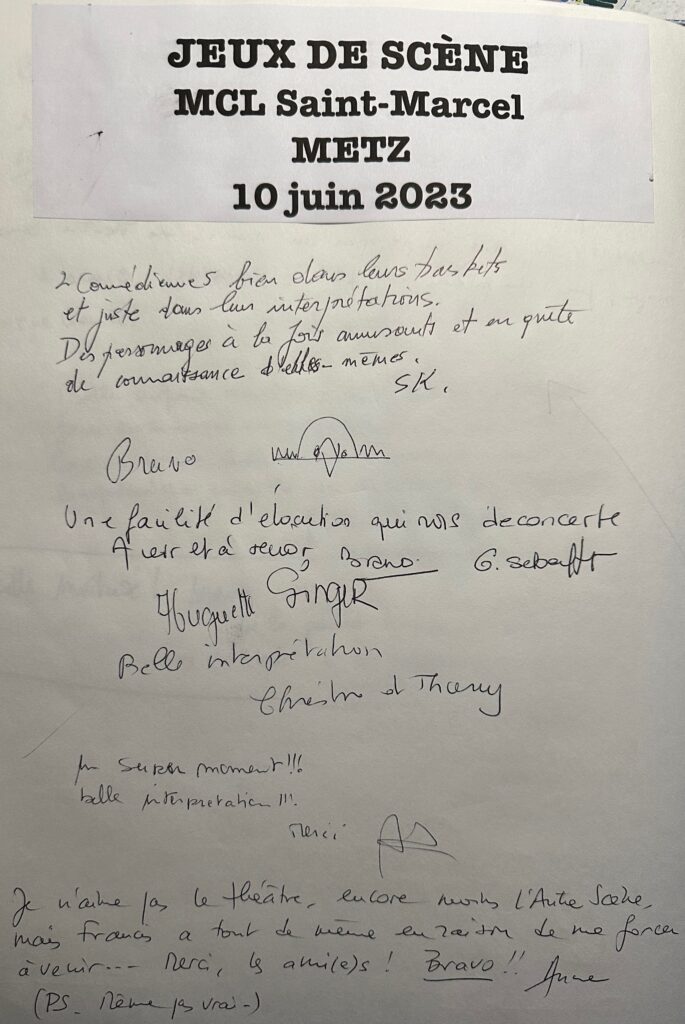 JEUX DE SCÈNE
MCL Saint-Marcel
METZ
10 juin 2023
2 Comédiennes bien dans leurs baskets
et juste dans leur interprétations.
Des personnages à la fois amusants et en quête
de connaissance d'elles-mêmes.
SK.
Bravo
Une facilité d'élocution qui nous deconcerte
A voir et à revoir Bravo. G.
Huguette GINGER
Belle interprétation
Christine et Thierry
un super moment!!!
belle interpretation!!!
Merci
Je n'aime pas le théâtre, encore moins l'Autre Scène,
mais Francis a tout de même eu raison de me forcer
à venir... Merci, les ami(e)s! Bravo!! Anne
(PS. Même pas vrai-)